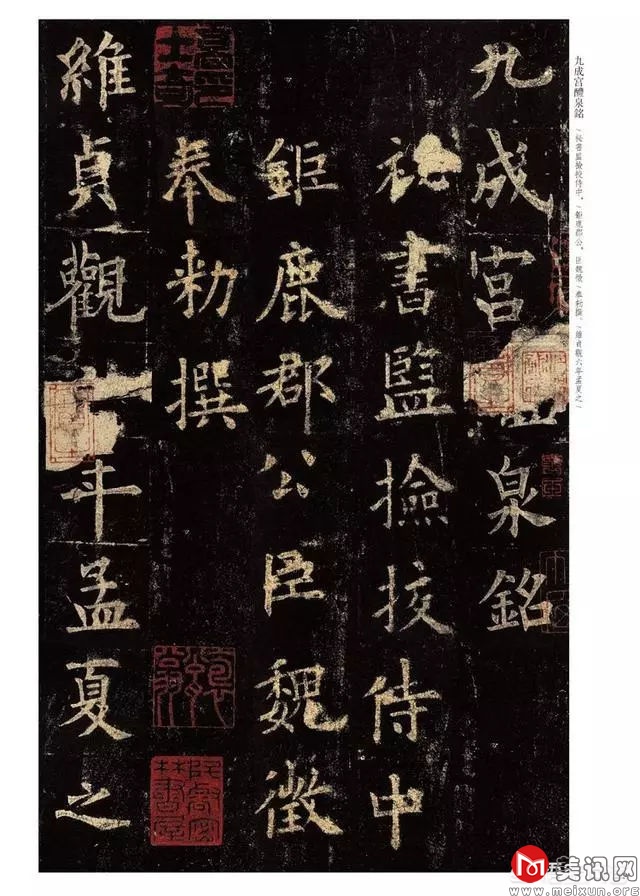 九成宮醴泉銘
祕書監撿挍侍中
鉅鹿郡公臣魏徵
奉勑撰
維貞觀六年孟夏之
九成宮醴泉銘 秘書監檢校侍中、 鉅鹿郡公、臣魏徵 奉勑撰。 維貞觀六年孟夏之
美讯网
www.meixun.org